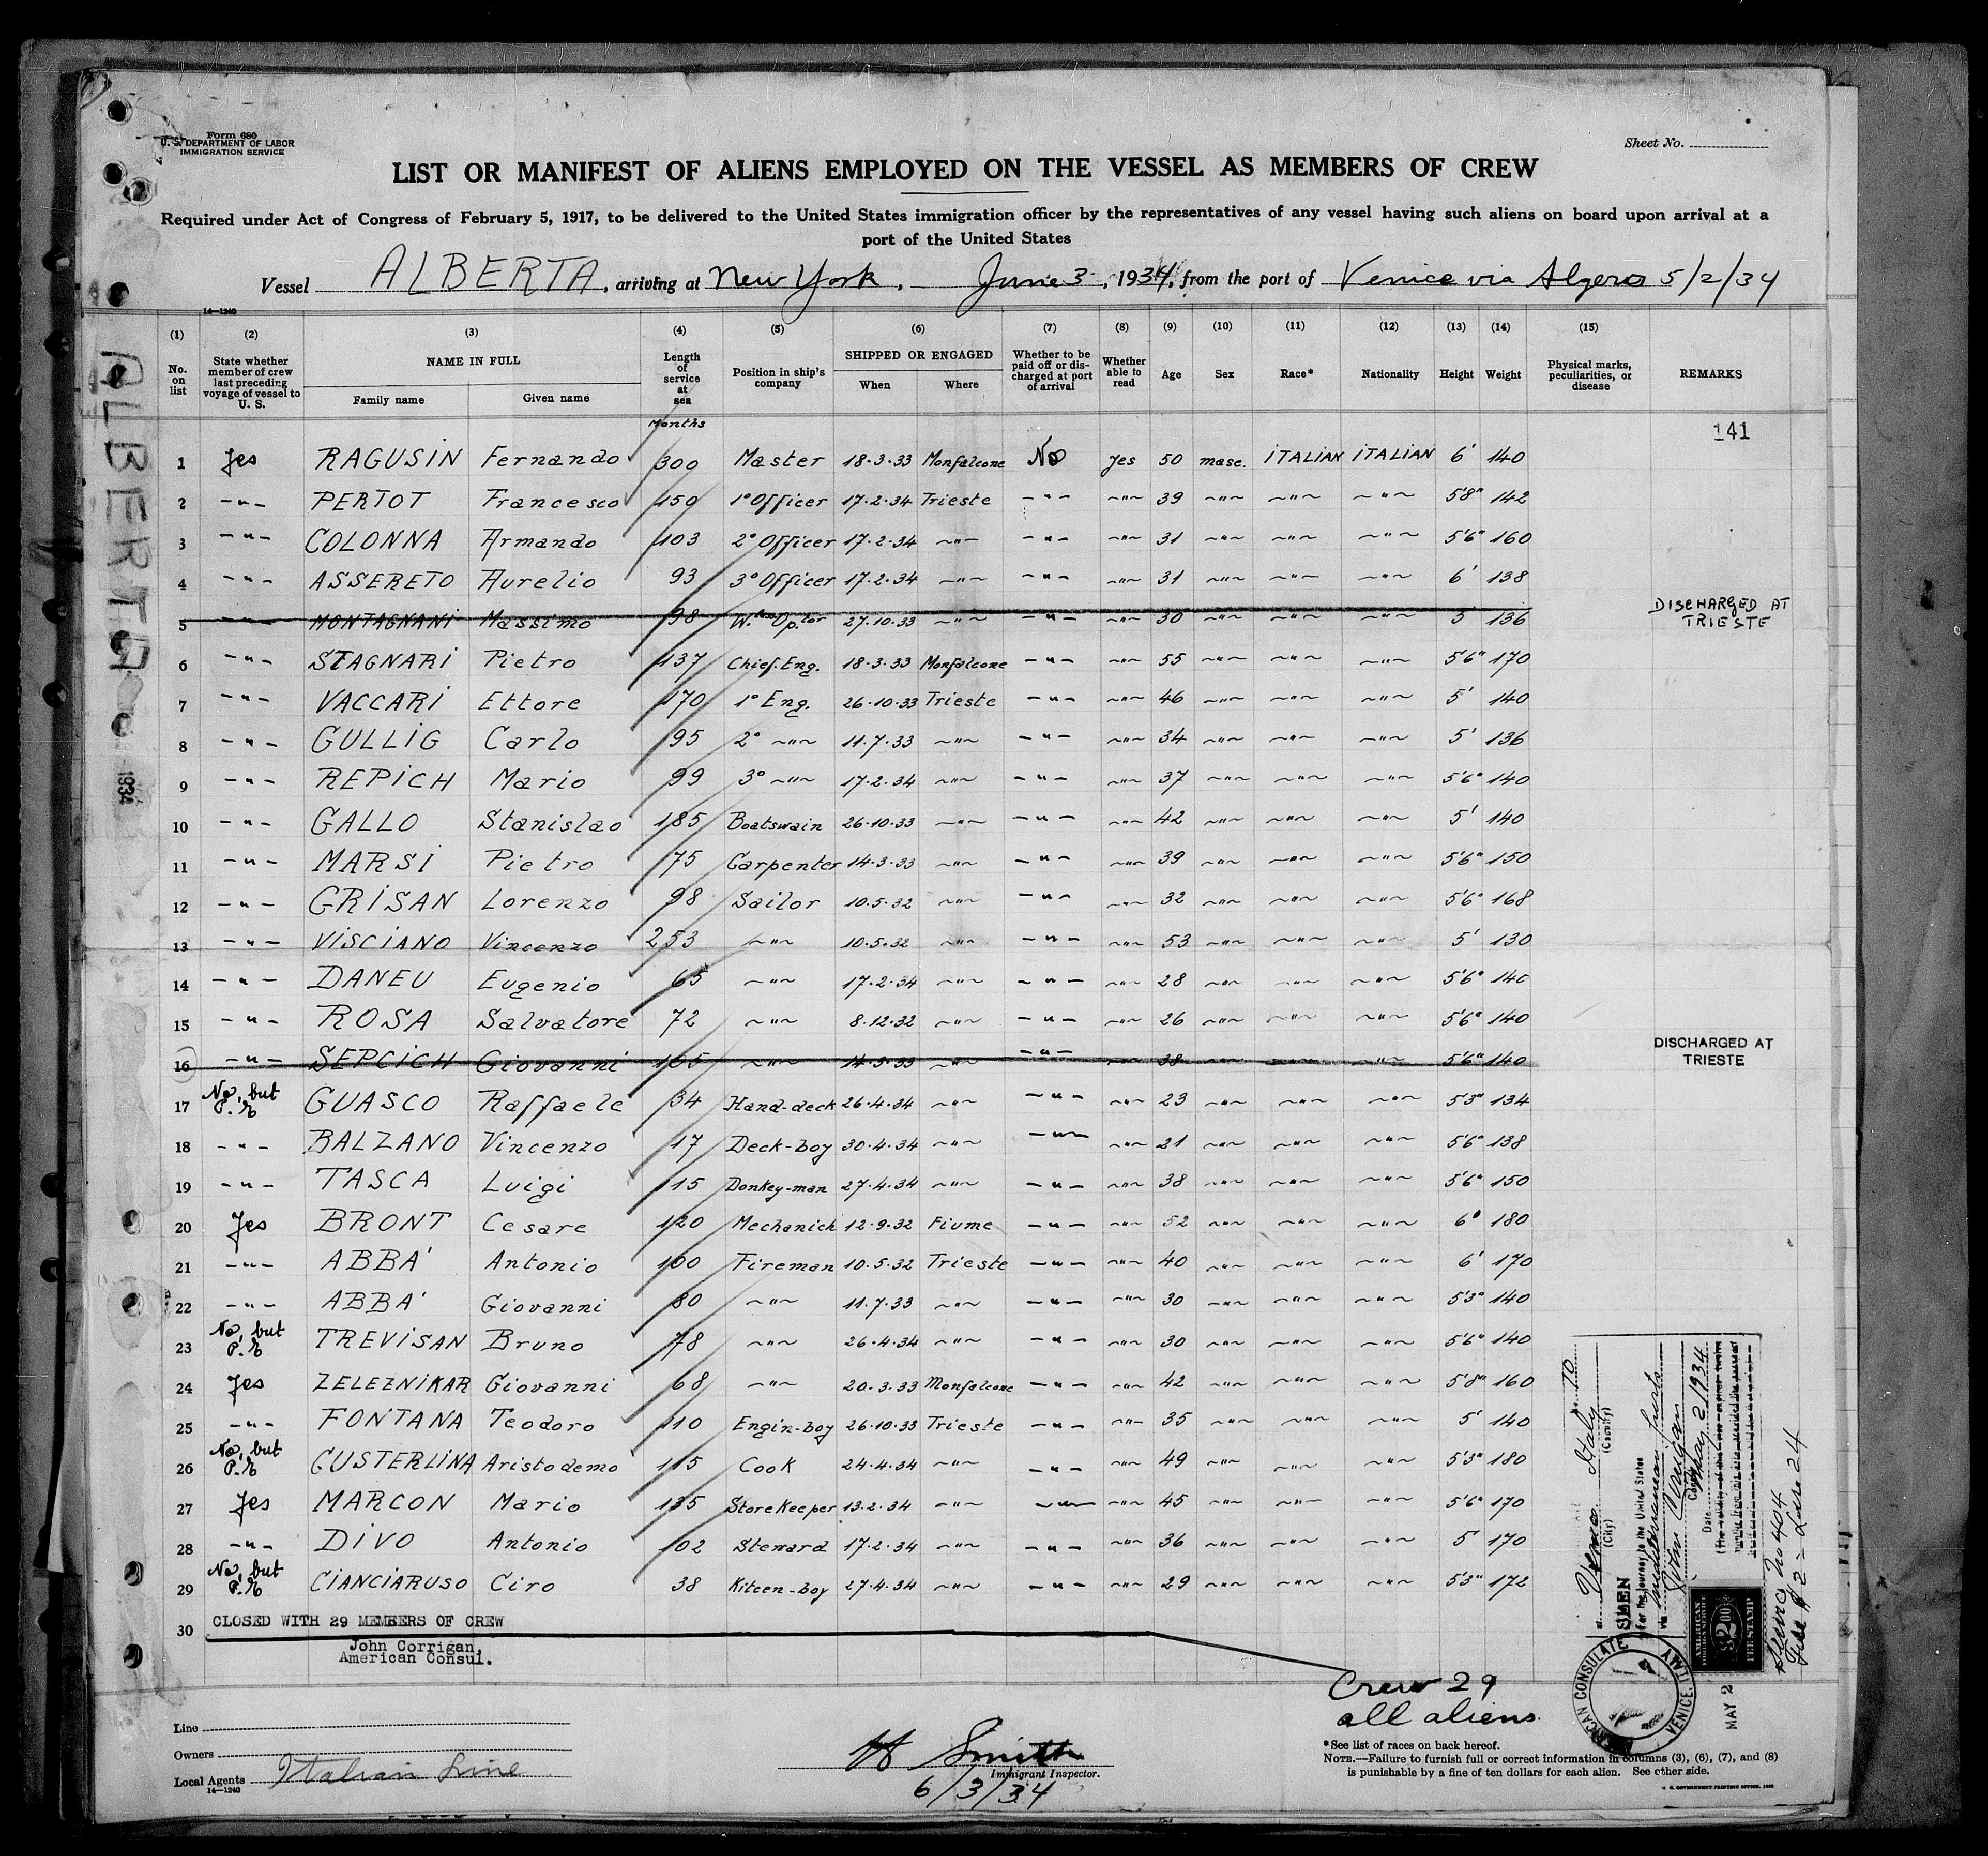 Form 680
U. S. DEPARTMENT OF LABOR
IMMIGRATION SERVICE
Sheet No.
LIST OR MANIFEST OF ALIENS EMPLOYED ON THE VESSEL AS MEMBERS OF CREW
Required under Act of Congress of February 5, 1917, to be delivered to the United States immigration officer by the representatives of any vessel having such aliens on board upon arrival at a
port of the United States
Vessel ALBERTA, arriving at New York, June 3, 1934, from the port of Venice via Algero 5/2/34
14—1240
(1) (2) (3) (4) (5) (6) (7) (8) (9) (10) (11) (12) (13) (14) (15)
No. on list | State whether member of crew last preceding voyage of vessel to U. S. | NAME IN FULL | Family name | Given name | Length of service at sea | Position in ship's company | SHIPPED OR ENGAGED | When | Where | Whether to be paid off or discharged at port of arrival | Whether able to read | Age | Sex | Race* | Nationality | Height | Weight | Physical marks, peculiarities, or disease | REMARKS
Months
141
1 Yes RAGUSIN Fernando 300 Master 18.3.33 Monfalcone No Yes 50 masc. ITALIAN ITALIAN 6' 140
2 -"- PERTOT Francesco 150 1° Officer 17.2.34 Trieste -"- -"- 39 -"- -"- -"- 5'8" 142
3 -"- COLONNA Armando 103 2° Officer 17.2.34 -"- -"- -"- 31 -"- -"- -"- 5'6" 160
4 -"- ASSERETO Aurelio 93 3° Officer 17.2.34 -"- -"- -"- 31 -"- -"- -"- 6' 138
5 -"- MONTAGNANI Massimo 98 W.less Op.tor 27.10.33 -"- -"- -"- 30 -"- -"- -"- 5' 136 DISCHARGED AT TRIESTE
6 -"- STAGNARI Pietro 137 Chief.Eng. 18.3.33 Monfalcone -"- -"- 55 -"- -"- -"- 5'6" 170
7 -"- VACCARI Ettore 170 1° Eng. 26.10.33 Trieste -"- -"- 46 -"- -"- -"- 5' 140
8 -"- GULLIG Carlo 95 2° -"- 11.7.33 -"- -"- -"- 34 -"- -"- -"- 5' 136
9 -"- REPICH Mario 99 3° -"- 17.2.34 -"- -"- -"- 37 -"- -"- -"- 5'6" 140
10 -"- GALLO Stanislao 185 Boatswain 26.10.33 -"- -"- -"- 42 -"- -"- -"- 5' 140
11 -"- MARSI Pietro 75 Carpenter 14.3.33 -"- -"- -"- 39 -"- -"- -"- 5'6" 150
12 -"- GRISAN Lorenzo 98 Sailor 10.5.32 -"- -"- -"- 32 -"- -"- -"- 5'6" 168
13 -"- VISCIANO Vincenzo 253 -"- 10.5.32 -"- -"- -"- 53 -"- -"- -"- 5' 130
14 -"- DANEU Eugenio 65 -"- 17.2.34 -"- -"- -"- 28 -"- -"- -"- 5'6" 140
15 -"- ROSA Salvatore 72 -"- 8.12.32 -"- -"- -"- 26 -"- -"- -"- 5'6" 140
16 -"- SEPCICH Giovanni 165 -"- 14.3.33 -"- -"- -"- 38 -"- -"- -"- 5'6" 140 DISCHARGED AT TRIESTE
17 No, but P.E GUASCO Raffaele 34 Hand-deck 26.4.34 -"- -"- -"- 23 -"- -"- -"- 5'3" 134
18 -"- BALZANO Vincenzo 17 Deck-boy 30.4.34 -"- -"- -"- 21 -"- -"- -"- 5'6" 138
19 -"- TASCA Luigi 115 Donkey-man 27.4.34 -"- -"- -"- 38 -"- -"- -"- 5'6" 150
20 Yes BRONT Cesare 120 Mechanich 12.9.32 Fiume -"- -"- 52 -"- -"- -"- 6' 180
21 -"- ABBA' Antonio 100 Fireman 10.5.32 Trieste -"- -"- 40 -"- -"- -"- 6' 170
22 -"- ABBA' Giovanni 80 -"- 11.7.33 -"- -"- -"- 30 -"- -"- -"- 5'3" 140
23 No, but P.E TREVISAN Bruno 78 -"- 26.4.34 -"- -"- -"- 30 -"- -"- -"- 5'6" 140
24 Yes ZELEZNIKAR Giovanni 68 -"- 20.3.33 Monfalcone -"- -"- 42 -"- -"- -"- 5'8" 160
25 -"- FONTANA Teodoro 110 Engin-boy 26.10.33 Trieste -"- -"- 35 -"- -"- -"- 5' 140
26 No, but P.E CUSTERLINA Aristodemo 115 Cook 24.4.34 -"- -"- -"- 49 -"- -"- -"- 5'3" 180
27 Yes MARCON Mario 135 Storekeeper 13.2.34 -"- -"- -"- 45 -"- -"- -"- 5'6" 170
28 -"- DIVO Antonio 102 Steward 17.2.34 -"- -"- -"- 36 -"- -"- -"- 5' 170
29 No, but P.E CIANCIARUSO Ciro 38 Kiteen-boy 27.4.34 -"- -"- -"- 29 -"- -"- -"- 5'3" 172
30 CLOSED WITH 29 MEMBERS OF CREW
John Corrigan,
American Consul.
Crew 29
all aliens
Line
Owners
Local Agents Italian Line
14—1240
H Smith
Immigrant Inspector.
6/3/34
*See list of races on back hereof.
NOTE.—Failure to furnish full or correct information in columns (3), (6), (7), and (8)
is punishable by a fine of ten dollars for each alien. See other side.
U. S. GOVERNMENT PRINTING OFFICE
ALBERTA
1934
No. 70
at Venice Italy
(City) (Country)
SEEN
For the journey to the United States
via mediterranean ports
John Corrigan
Consul
Date May 2 1934
AMERICAN FOREIGN SERVICE
$2.00
FEE STAMP
Service No 404
Fee $2 = Lire 24
AMERICAN CONSULATE
VENICE, ITALY
MAY 2